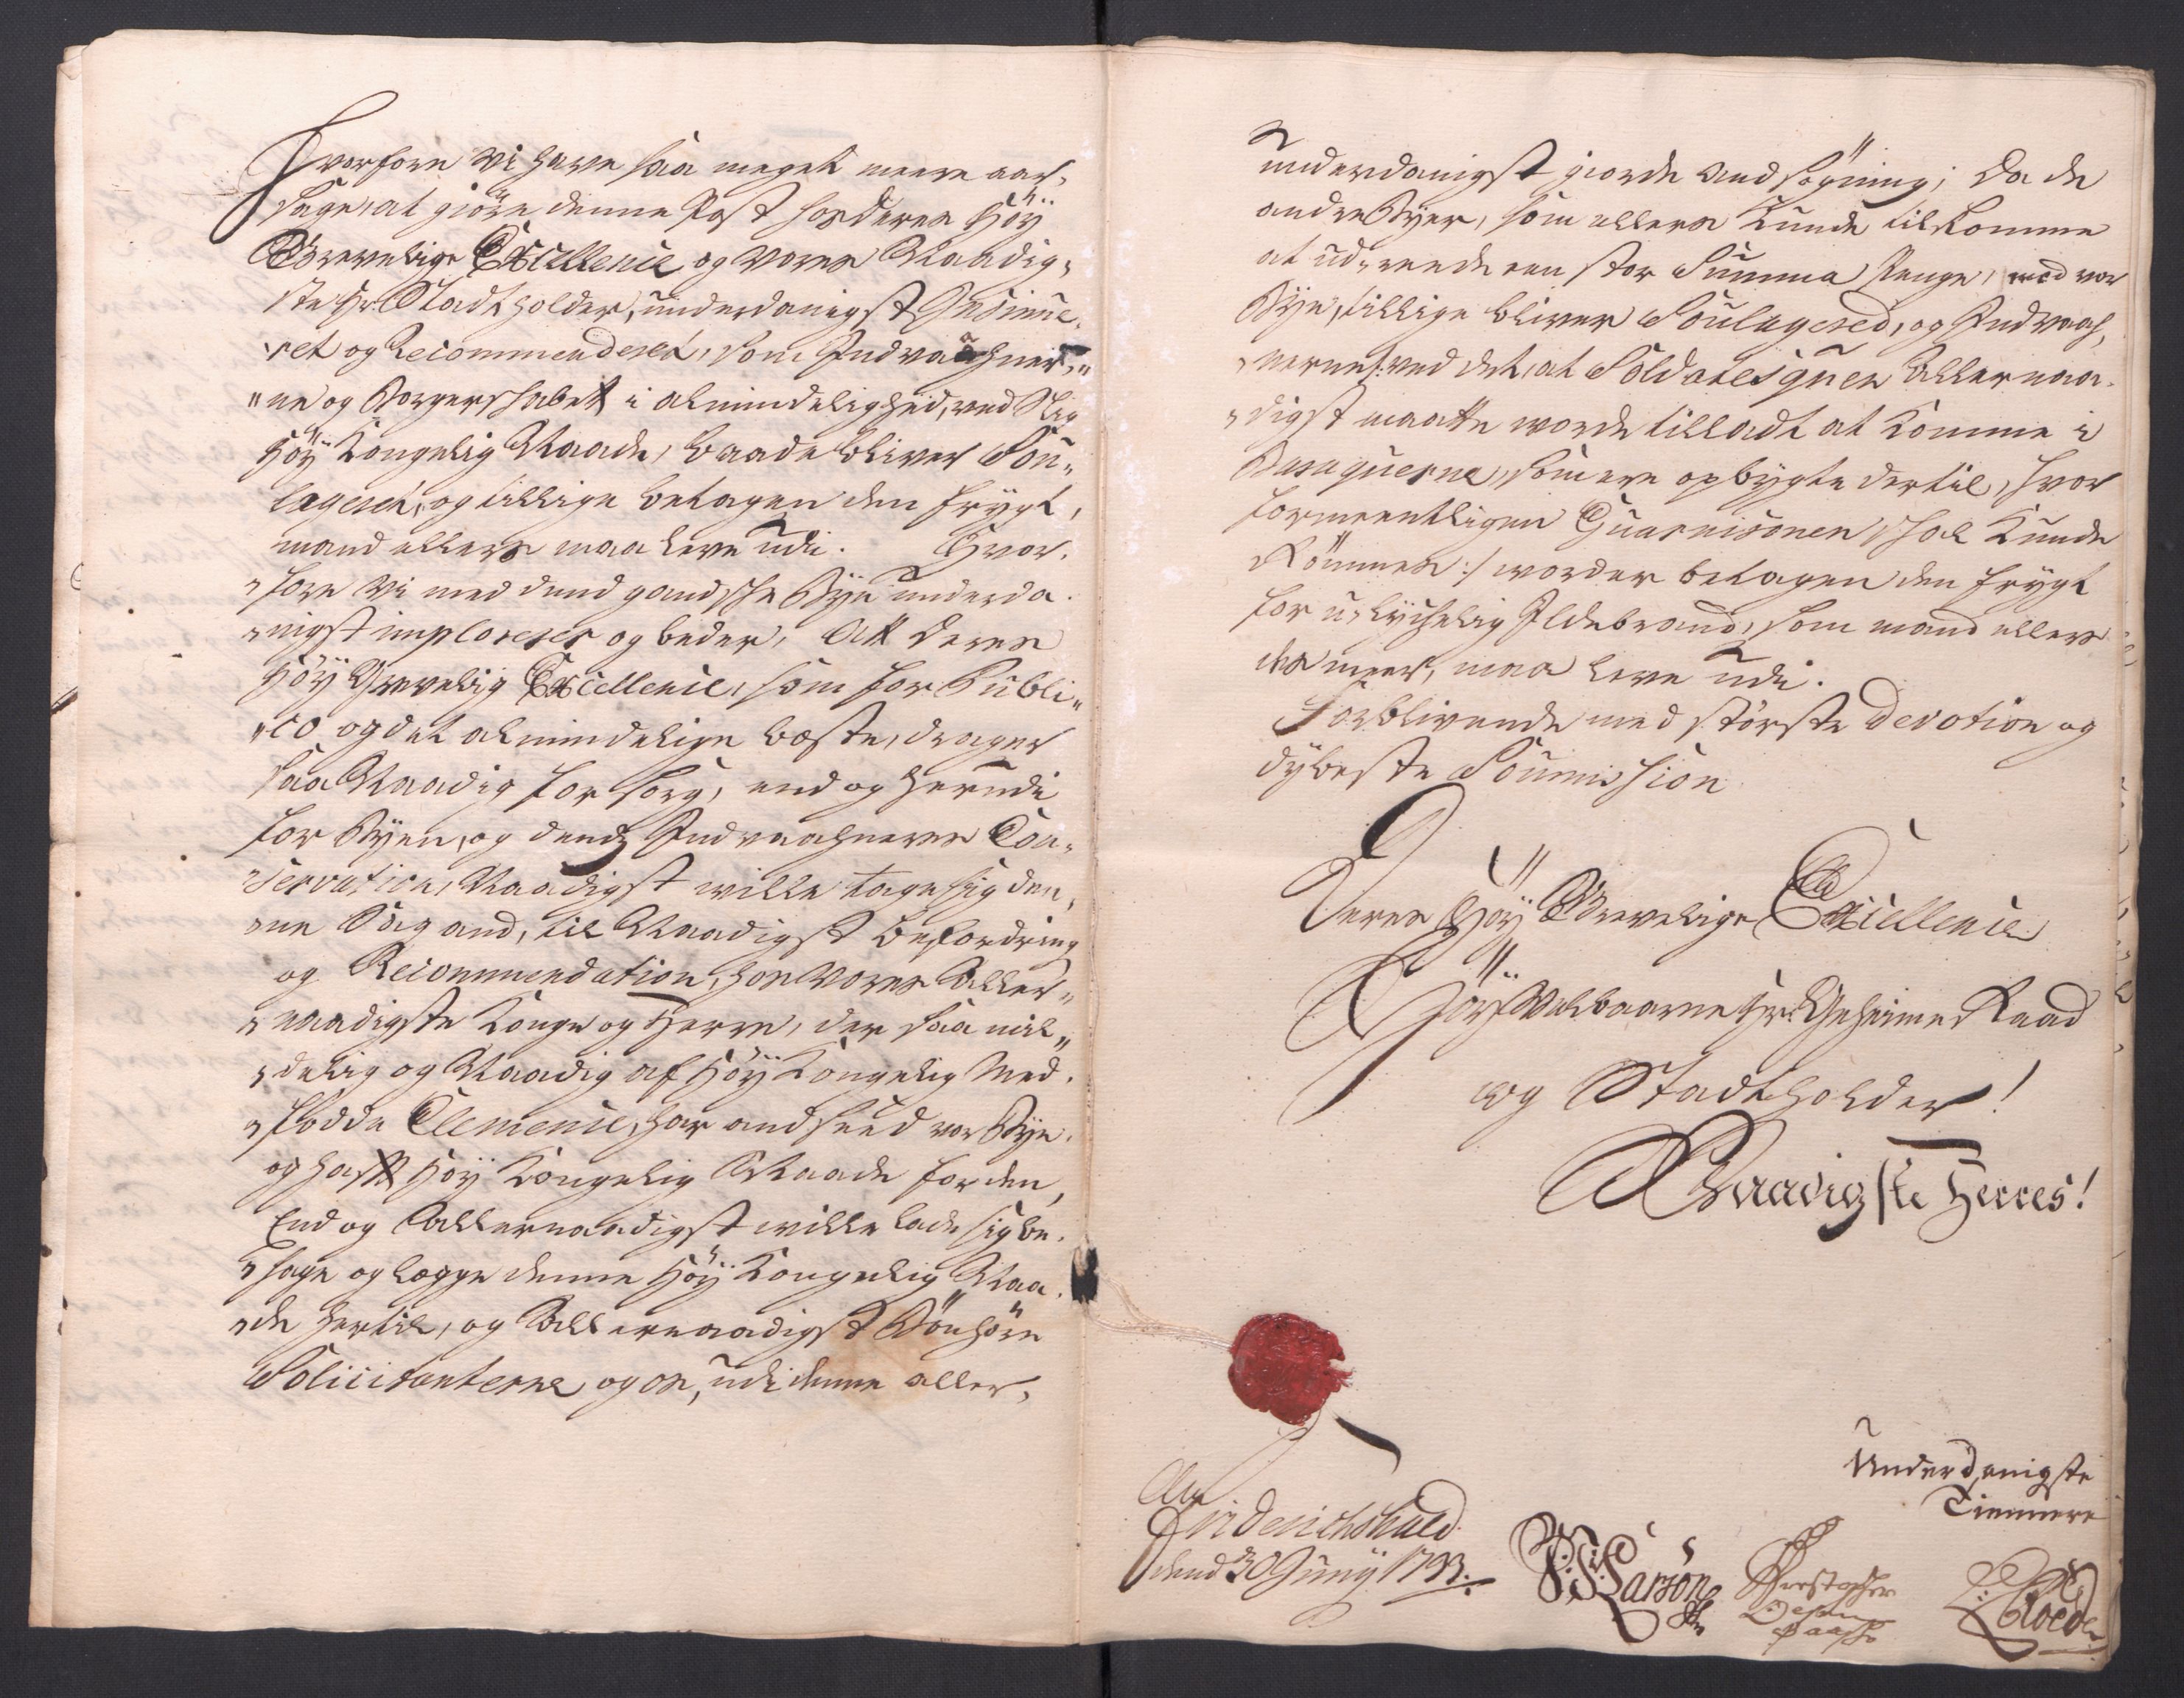 Hvorfore Vi have saa meget meere aar,
sage, at giöre denne Post hos Deres Höÿ
Grevelige Excellence og Vores Naadig,
ste Hr. Stadtholder, underdanigst Insinue,
ret og Recommenderet, som Indvaahner,,
,,ne og Borgerskabet i almindelighed, ved Slig
Höÿ Kongelig Naade, baade bliver Sou,
lageret, og tillige betagen den frygt,
mand ellers maa leve udi. Hvor,
,fore Vi med dend gandske Bÿe underda,
,nigst imploreres og beder, Att Deres
Höÿ Grevelig Excellence, som for Publi,,
,,co og det almindelige beste, drager
saa Naadig for Sorg, end og herudi
for Bÿen, og dends Indvaahneres Con,
servation, Naadigst wille tage sig den,
,ne Sag and, til Naadigst befordring
og Recommendation, hos Vores Aller,,
,naadigste Konge og Herre, der saa mil,,
,delig og Naadig af Höÿ Kongelig Med,
,födde Clemence, har andseed vor Bÿe,
og hafft Höÿ Kongelig Naade for den,
End og Allernaadigst wille lade sig be,
,hage og legge denne Höÿ Kongelig Naa,
,de hertil, og Allernaadigst Bönhöre
Solicitanterne og os, udi denne aller,
underdanigst giorde Andsögning; Da de
andre Bÿer, som ellers Kunde tilkomme
at ud,reede een stor Summa Penge, med vor
Bÿe, tillige bliver Soulagered, og Indvaah,
,nerne /: ved det, at Soldatesquen Allernaa,
,digst maatte worde tilladt at Komme i
Barquerne, som ere opbygte dertil, hvor
formeentligen Guarnisonen skal Kunde
Römmes :/ worder betagen den frygt
for u,lÿkelig Ildebrand, som mand ellers
des meer, maa leve udi.
Forblivende med störste Devotion og
dÿbeste Soumission
Deres Höÿ Grevelige Excellence
Höÿ Welbaarne Hr. Geheime Raad
og Stadtholder!
Naadigste Herres!
Underdanigste
Tiennere
Friderichshald
dend 30 Junÿ 1733.
P: Larsön
Christopher
Roed